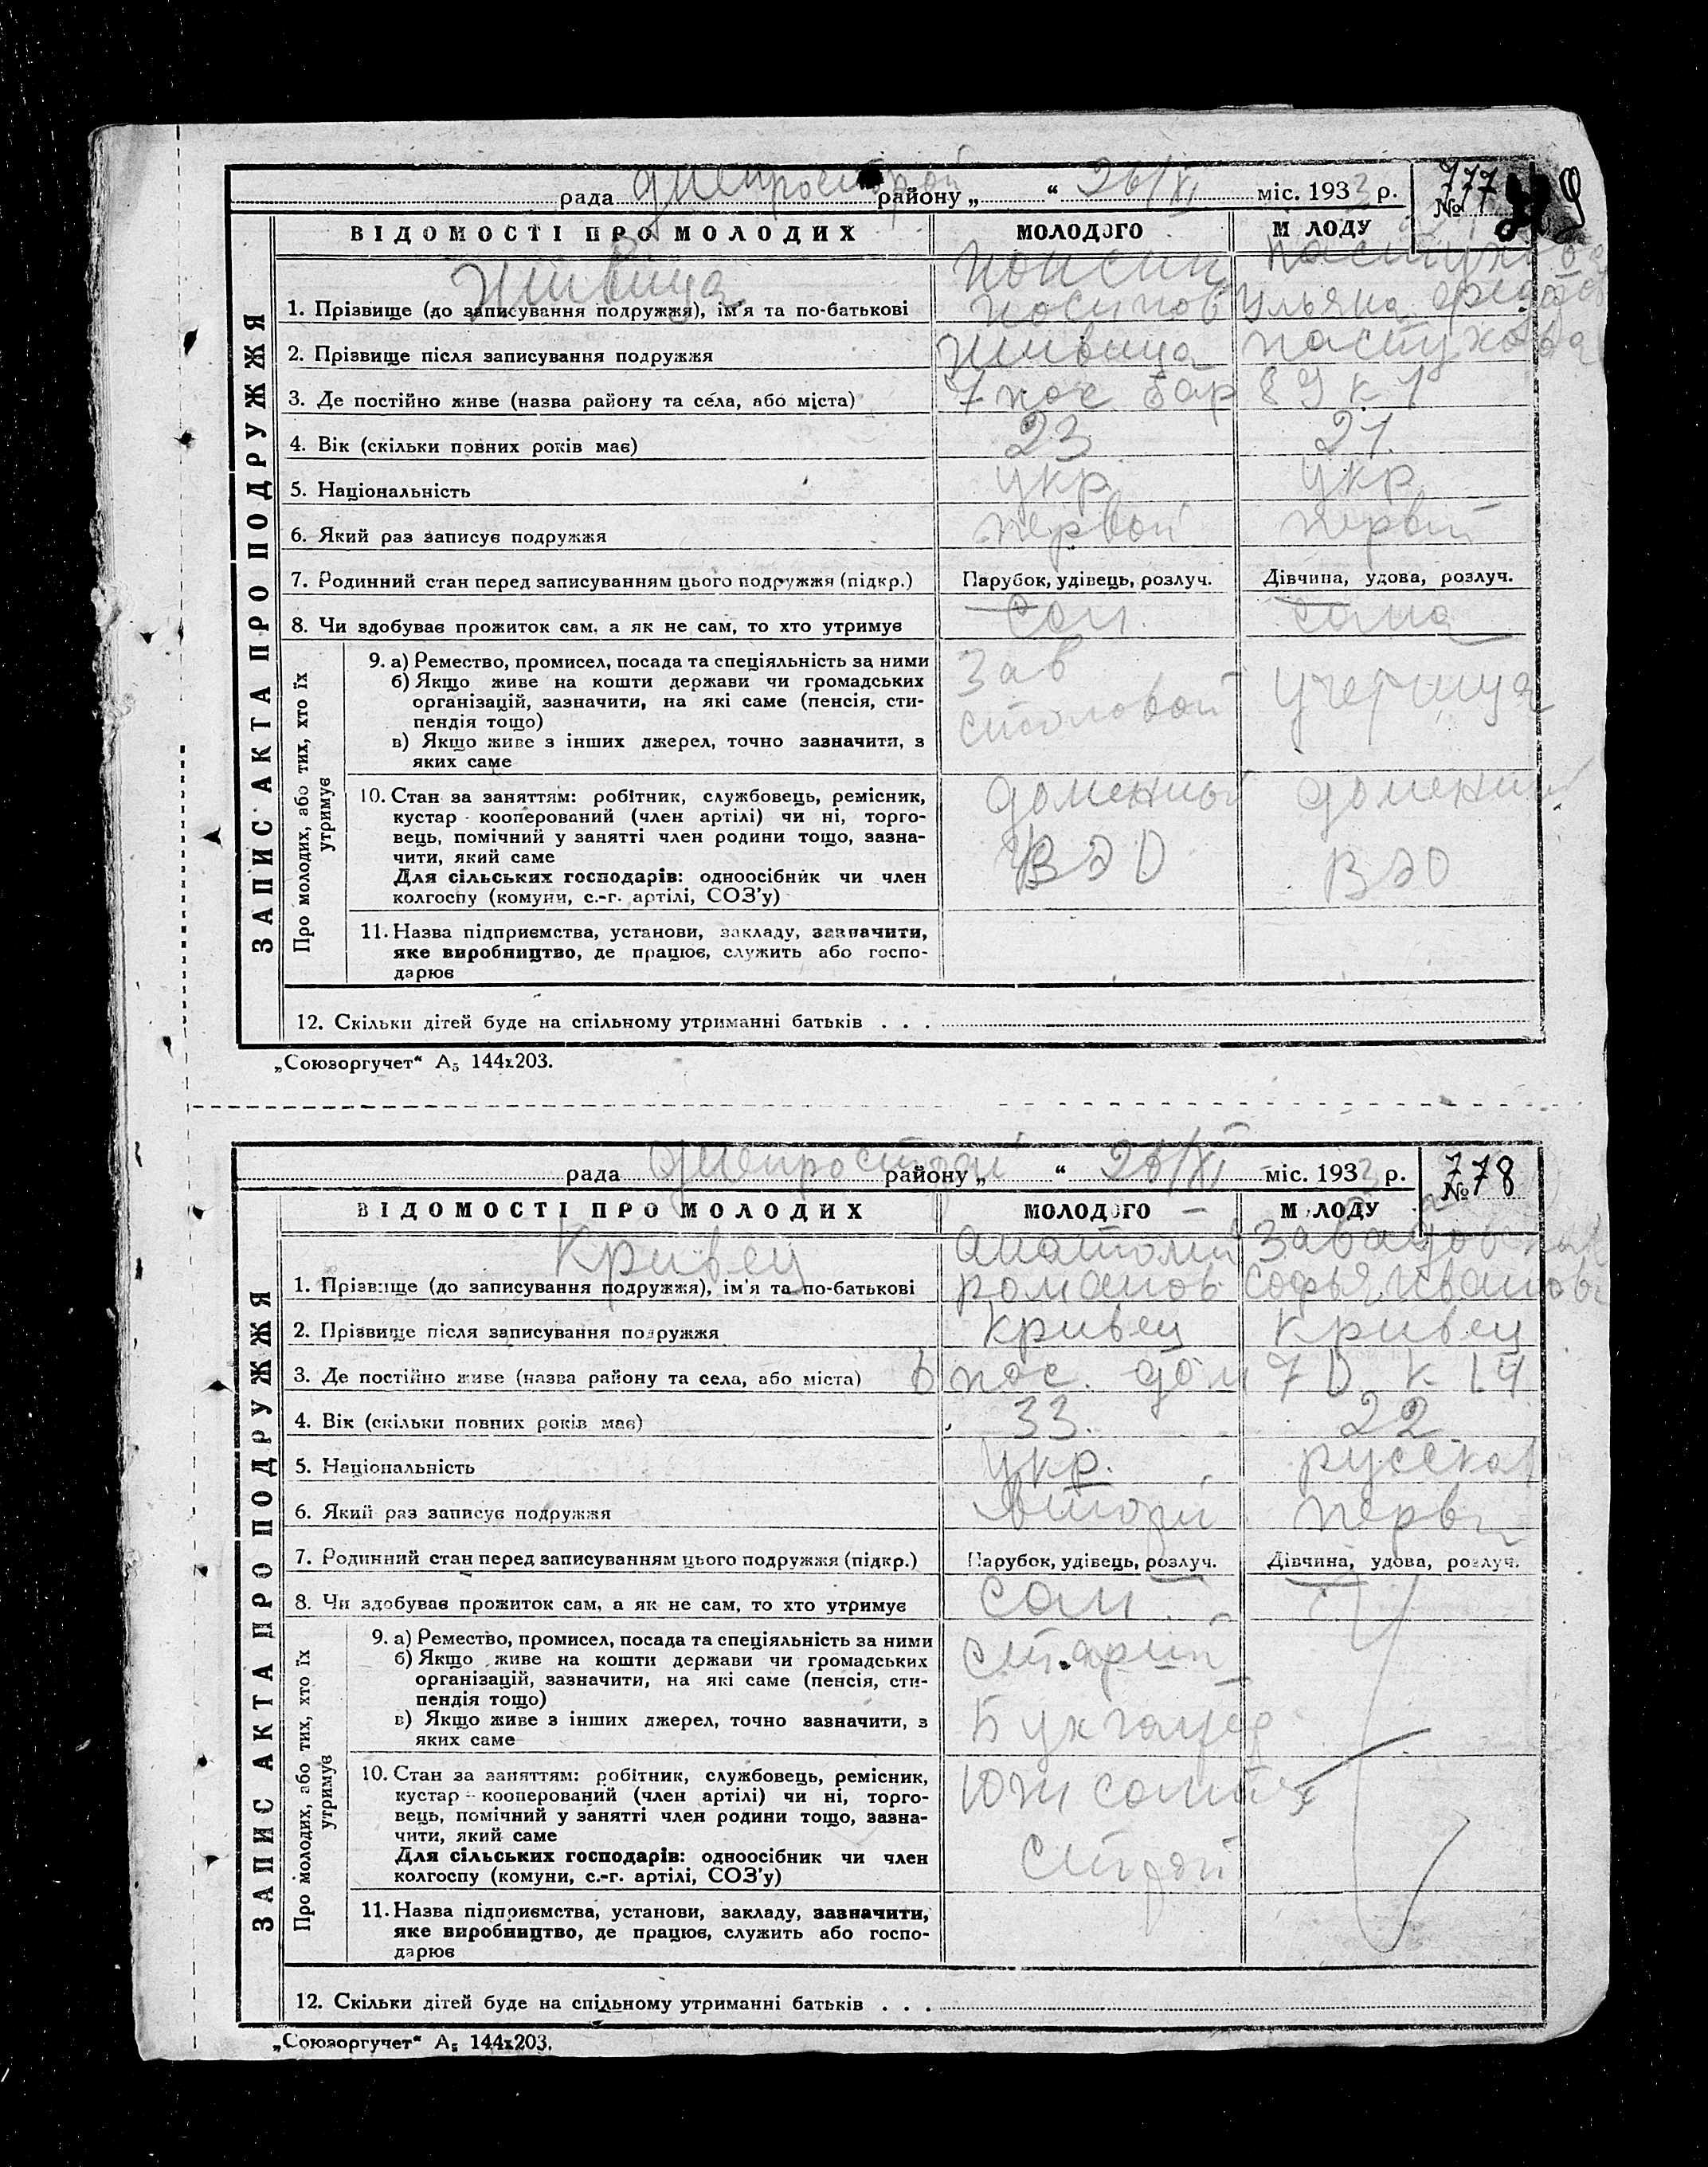 рада Днепрострой району „ “ 26/XI міс. 1933 р. № 777
ВІДОМОСТІ ПРО МОЛОДИХ МОЛОДОГО М ЛОДУ
Пастухова
1. Прізвище (до записування подружжя), ім'я та по-батькові Ульяна
2. Прізвище після записування подружжя Пастухова
3. Де постійно живе (назва району та села, або міста) 7 пос бар 89 к 1
4. Вік (скільки повних років має) 23 21
5. Національність укр укр
6. Який раз записує подружжя первой первый
7. Родинний стан перед записуванням цього подружжя (підкр.) Парубок, удівець, розлуч. Дівчина, удова, розлуч.
8. Чи здобуває прожиток сам, а як не сам, то хто утримує сам сама
ЗАПИС АКТА ПРО ПОДРУЖЖЯ
Про молодих, або тих, хто їх утримує
9. а) Ремество, промисел, посада та спеціяльність за ними Зав
б) Якщо живе на кошти держави чи громадських
організацій, зазначити, на які саме (пенсія, сти-
пендія тощо) столовой учетчица
в) Якщо живе з інших джерел, точно зазначити, з
яких саме
10. Стан за заняттям: робітник, службовець, ремісник, доменный доменный
кустар - кооперований (член артілі) чи ні, торго-
вець, помічний у занятті член родини тощо, зазна-
чити, який саме
Для сільських господарів: одноосібник чи член
колгоспу (комуни, с.-г. артілі, СОЗ'у)
11. Назва підприємства, установи, закладу, зазначити,
яке виробництво, де працює, служить або госпо-
дарює
12. Скільки дітей буде на спільному утриманні батьків . . .
„Союзоргучет“ А₅ 144х203.
рада Днепрострой району „ “ 26/XI міс. 1933 р. № 778
ВІДОМОСТІ ПРО МОЛОДИХ МОЛОДОГО М ЛОДУ
Кривец Анатолий
1. Прізвище (до записування подружжя), ім'я та по-батькові романов Софья Иванов
2. Прізвище після записування подружжя Кривец Кривец
3. Де постійно живе (назва району та села, або міста) 6 пос. дом 70 к 14
4. Вік (скільки повних років має) 33. 22
5. Національність укр. русская
6. Який раз записує подружжя второй первы
7. Родинний стан перед записуванням цього подружжя (підкр.) Парубок, удівець, розлуч. Дівчина, удова, розлуч.
8. Чи здобуває прожиток сам, а як не сам, то хто утримує сам
ЗАПИС АКТА ПРО ПОДРУЖЖЯ
Про молодих, або тих, хто їх утримує
9. а) Ремество, промисел, посада та спеціяльність за ними старший
б) Якщо живе на кошти держави чи громадських
організацій, зазначити, на які саме (пенсія, сти-
пендія тощо) Бухгалтер
в) Якщо живе з інших джерел, точно зазначити, з
яких саме
10. Стан за заняттям: робітник, службовець, ремісник,
кустар - кооперований (член артілі) чи ні, торго-
вець, помічний у занятті член родини тощо, зазна-
чити, який саме
Для сільських господарів: одноосібник чи член строй
колгоспу (комуни, с.-г. артілі, СОЗ'у)
11. Назва підприємства, установи, закладу, зазначити,
яке виробництво, де працює, служить або госпо-
дарює
12. Скільки дітей буде на спільному утриманні батьків . . .
„Союзоргучет“ А₅ 144х203.